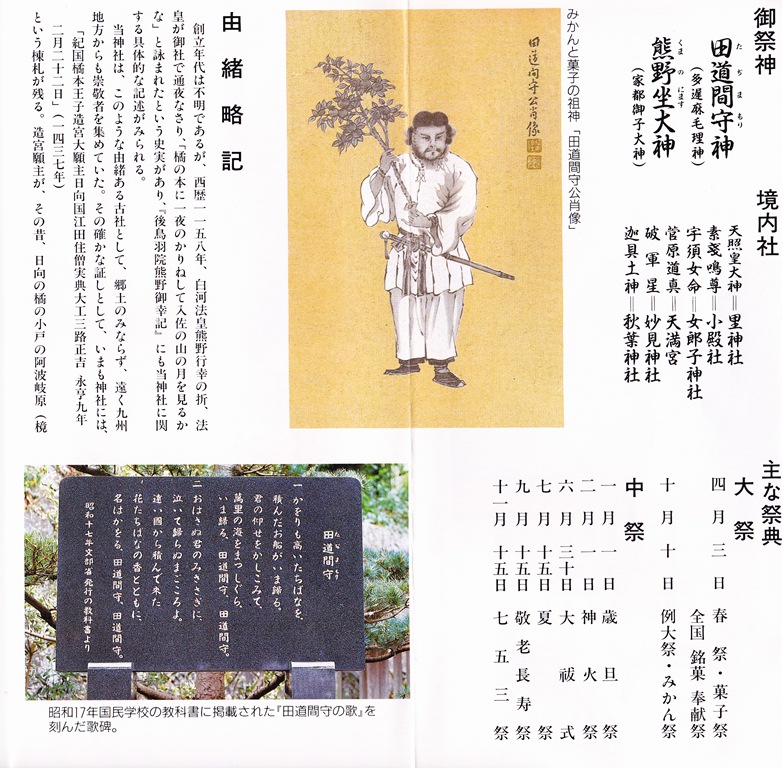 御祭神
田道間守神
たぢまもり
(多遅麻毛理神)
熊野坐大神
くまのにます
(家都御子大神)
境内社
天照皇大神=里神社
素戔鳴尊=小殿社
宇須女命=女郎子神社
菅原道真=天満宮
破軍星=妙見神社
迦具土神=秋葉神社
主な祭典
大祭
四月三日 春祭・菓子祭
全国銘菓奉献祭
十月十日 例大祭・みかん祭
中祭
一月一日 歳旦祭
二月一日 神火祭
六月三十日 大祓式
七月十五日 夏祭
九月十五日 敬老長寿祭
十一月十五日 七五三祭
みかんと菓子の祖神「田道間守公肖像」
田道間守公肖像
由緒略記
創立年代は不明であるが、西歴一一五八年、白河法皇熊野行幸の折、法
皇が御社で通夜なさり、『橘の本に一夜のかりねして入佐の山の月を見るか
な』と詠まれたという史実があり、『後鳥羽院熊野御幸記』にも当神社に関
する具体的な記述がみられる。
当神社は、このような由緒ある古社として、郷土のみならず、遠く九州
地方からも崇敬者を集めていた。その確かな証しとして、いまも神社には、
「紀国橘本王子造宮大願主日向国江田住僧実典大工三路正吉 永亨九年
二月二十二日」(一四三七年)
という棟札が残る。造宮願主が、その昔、日向の橘の小戸の阿波岐原(檍
田道間守
たぢまもり
一 かをりも高いたちばなを、
積んだお船がいま帰る。
君の仰せをかしこみて、
萬里の海をまっしぐら、
いま帰る、田道間守、田道間守。
二 おはさぬ君のみささぎに、
泣いて帰らぬまごころよ。
遠い國から積んで来た
花たちばなの香とともに、
名はかをる、田道間守、田道間守。
昭和十七年文部省発行の教科書より
昭和17年国民学校の教科書に掲載された『田道間守の歌』を
刻んだ歌碑。